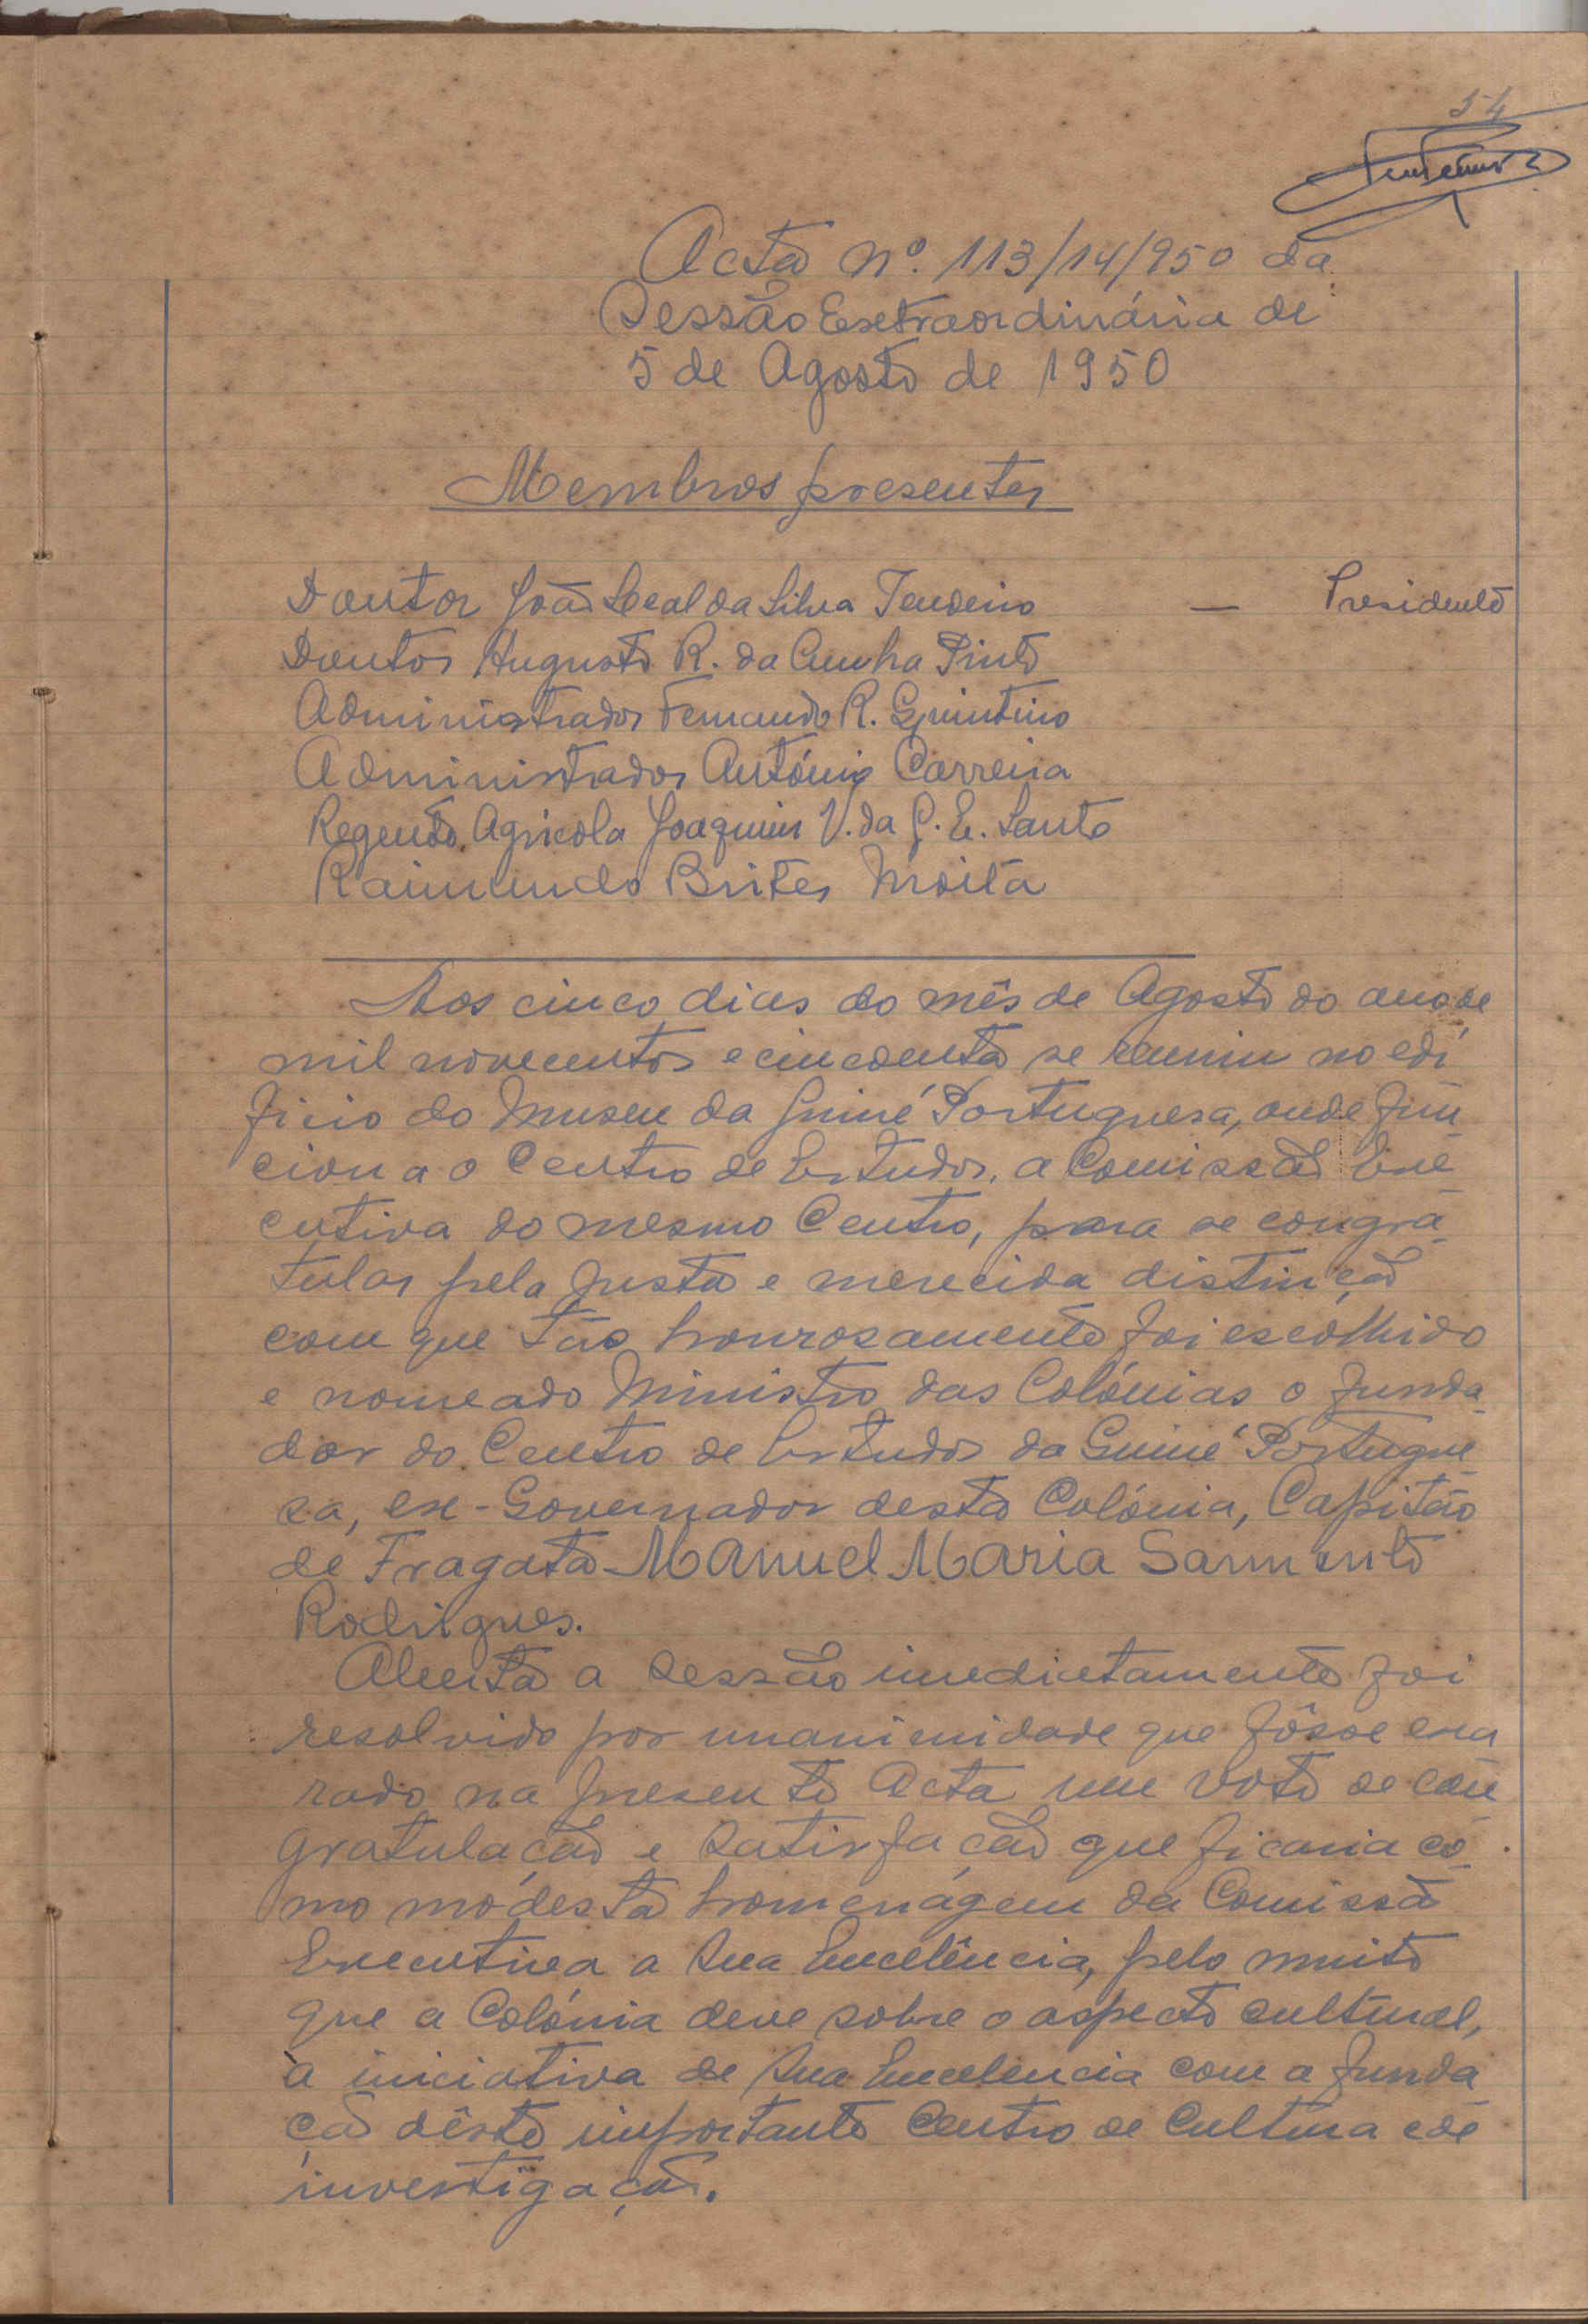 54
Acta nº. 113/14/950 da
Sessão Extraordinária de
5 de Agosto de 1950
Membros presentes
Doutor João Leal da Silva Tendeiro — Presidente
Doutor Augusto R. da Cunha Pinto
Administrador Fernando R. Quintino
Administrador António Carreira
Regente Agrícola Joaquim V. da G. E. Santo
Raimundo Brites Moita
Aos cinco dias do mês de Agosto do ano de
mil novecentos e cincoenta se reuniu no edi
ficio do Museu da Guiné Portuguesa, onde fun
ciona o Centro de Estudos, a Comissão Exe
cutiva do mesmo Centro, para se congra
tular pela justa e merecida distinção
com que tão honrosamente foi escolhido
e nomeado Ministro das Colónias o funda
dor do Centro de Estudos da Guiné Portugue
sa, ex-Governador desta Colónia, Capitão
de Fragata Manuel Maria Sarmento
Rodrigues.
Aberta a sessão imediatamente foi
resolvido por unanimidade que fôsse exa
rado na presente Acta um voto de con
gratulação e satisfação que ficaria co
mo modesta homenagem da Comissão
Executiva a Sua Excelência, pelo muito
que a Colónia deve sobre o aspecto cultural,
à iniciativa de Sua Excelencia com a funda
ção dêste importante Centro de Cultura e de
investigação.